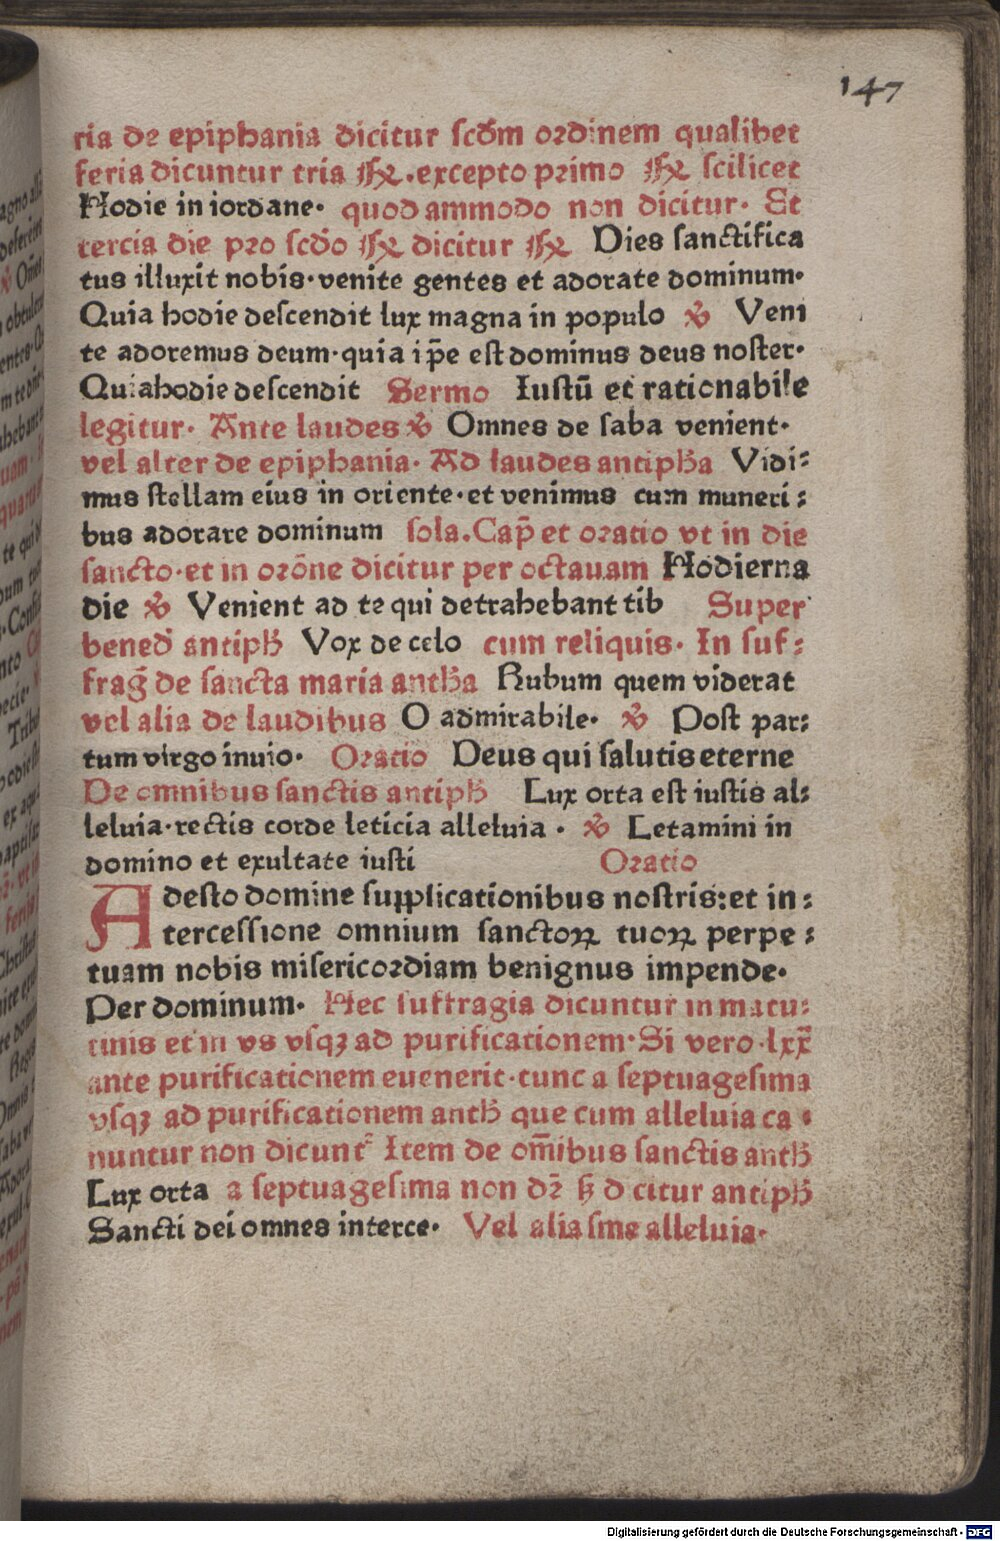 147
ria de epiphania dicitur scd̄m ordinem qualibet
feria dicuntur tria ℟.excepto primo ℟ scilicet
Hodie in iordane· quod ammodo non dicitur· Et
tercia die pro scd̄o ℟ dicitur ℟ Dies sanctifica
tus illuxit nobis·venite gentes et adorate dominum·
Quia hodie descendit lux magna in populo ℣ Veni
te adoremus deum·quia ip̄e est dominus deus noster·
Quia hodie descendit Sermo Iustū et rationabile
legitur· Ante laudes ℣ Omnes de saba venient·
vel alter de epiphania· Ad laudes antiph̄a Vidi:
mus stellam eius in oriente·et venimus cum muneri:
bus adorare dominum sola.Cap̄ et oratio vt in die
sancto·et in orōne dicitur per octauam Hodierna
die ℣ Venient ad te qui detrahebant tib Super
bened̄ antiph̄ Vox de celo cum reliquis· In suf:
fraḡ de sancta maria anth̄a Rubum quem viderat
vel alia de laudibus O admirabile· ℣ Post par:
tum virgo inuio· Oratio Deus qui salutis eterne
De omnibus sanctis antiph̄ Lux orta est iustis al:
leluia·rectis corde leticia alleluia · ℣ Letamini in
domino et exultate iusti Oratio
Adesto domine supplicationibus nostris:et in:
tercessione omnium sanctoꝝ tuoꝝ perpe:
tuam nobis misericordiam benignus impende·
Per dominum· Hec suffragia dicuntur in matu:
tinis et in vs vsqꝫ ad purificationem·Si vero·lxx̄
ante purificationem euenerit·tunc a septuagesima
vsqꝫ ad purificationem anth̄ que cum alleluia ca:
nuntur non dicunt᷑ Item de om̄ibus sanctis anth̄
Lux orta a septuagesima non dr̄ sꝫ dicitur antiph̄
Sancti dei omnes interce· Vel alia sine alleluia·
Digitalisierung gefördert durch die Deutsche Forschungsgemeinschaft - DFG